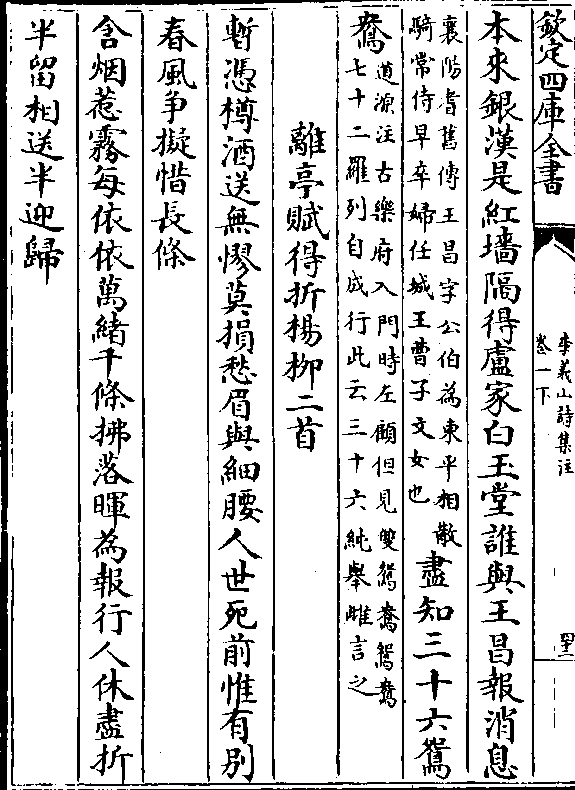 欽定四庫全書
李義山詩集注
卷一下
四十二
本來銀漢是紅墻隔得盧家白玉堂誰與王昌報消息
襄陽耆舊傳王昌字公伯為東平相散
騎常侍早卒婦任城王曹子文女也
盡知三十六鴛
鴦
道源注古樂府入門時左顧但見雙鴛鴦鴛鴦
七十二羅列自成行此云三十六純舉雌言之
離亭賦得折楊柳二首
暫憑樽酒送無憀莫損愁眉與細腰人世死前惟有別
春風爭擬惜長條
含烟惹霧每依依萬緒千條拂落暉為報行人休盡折
半留相送半迎歸